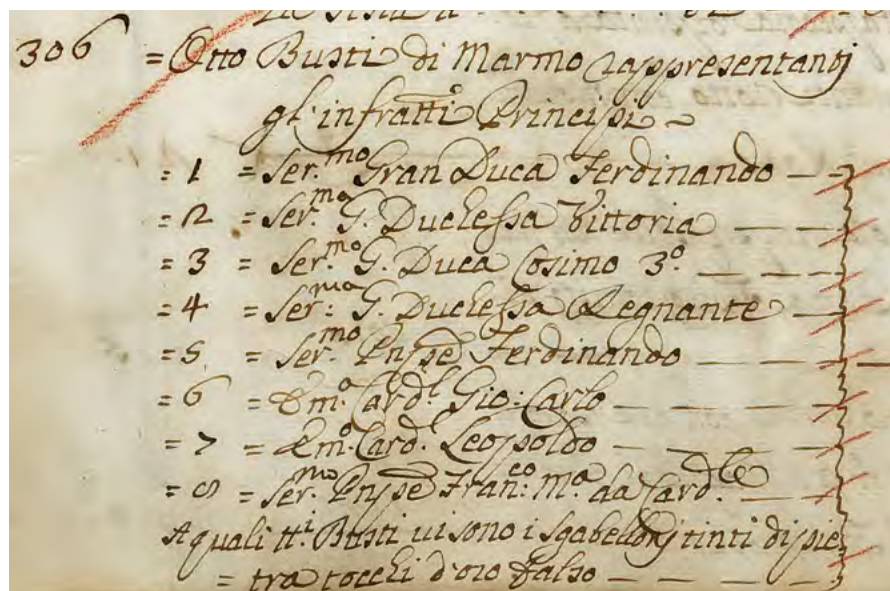 306 = Otto Busti di Marmo rappresentantj
gl'infratti Principi =
= 1 = Ser.mo Gran Duca Ferdinando —
= 2 = Ser.ma G. Duchessa Vittoria — —
= 3 = Ser.mo G. Duca Cosimo 3º. — — —
= 4 = Ser:ma G. Duchessa Regnante —
= 5 = Ser.mo Pnpe Ferdinando — — —
= 6 = Em.o Card.l Gio: Carlo — — —
= 7 = Em.o Card.l Leopoldo — — —
= 8 = Ser.mo Pnpe Fran:co M.a da Card.le —
A quali tt.i Busti vi sono i sgabellonj tinti di pie
= tra tocchi d'oro falso — — — —